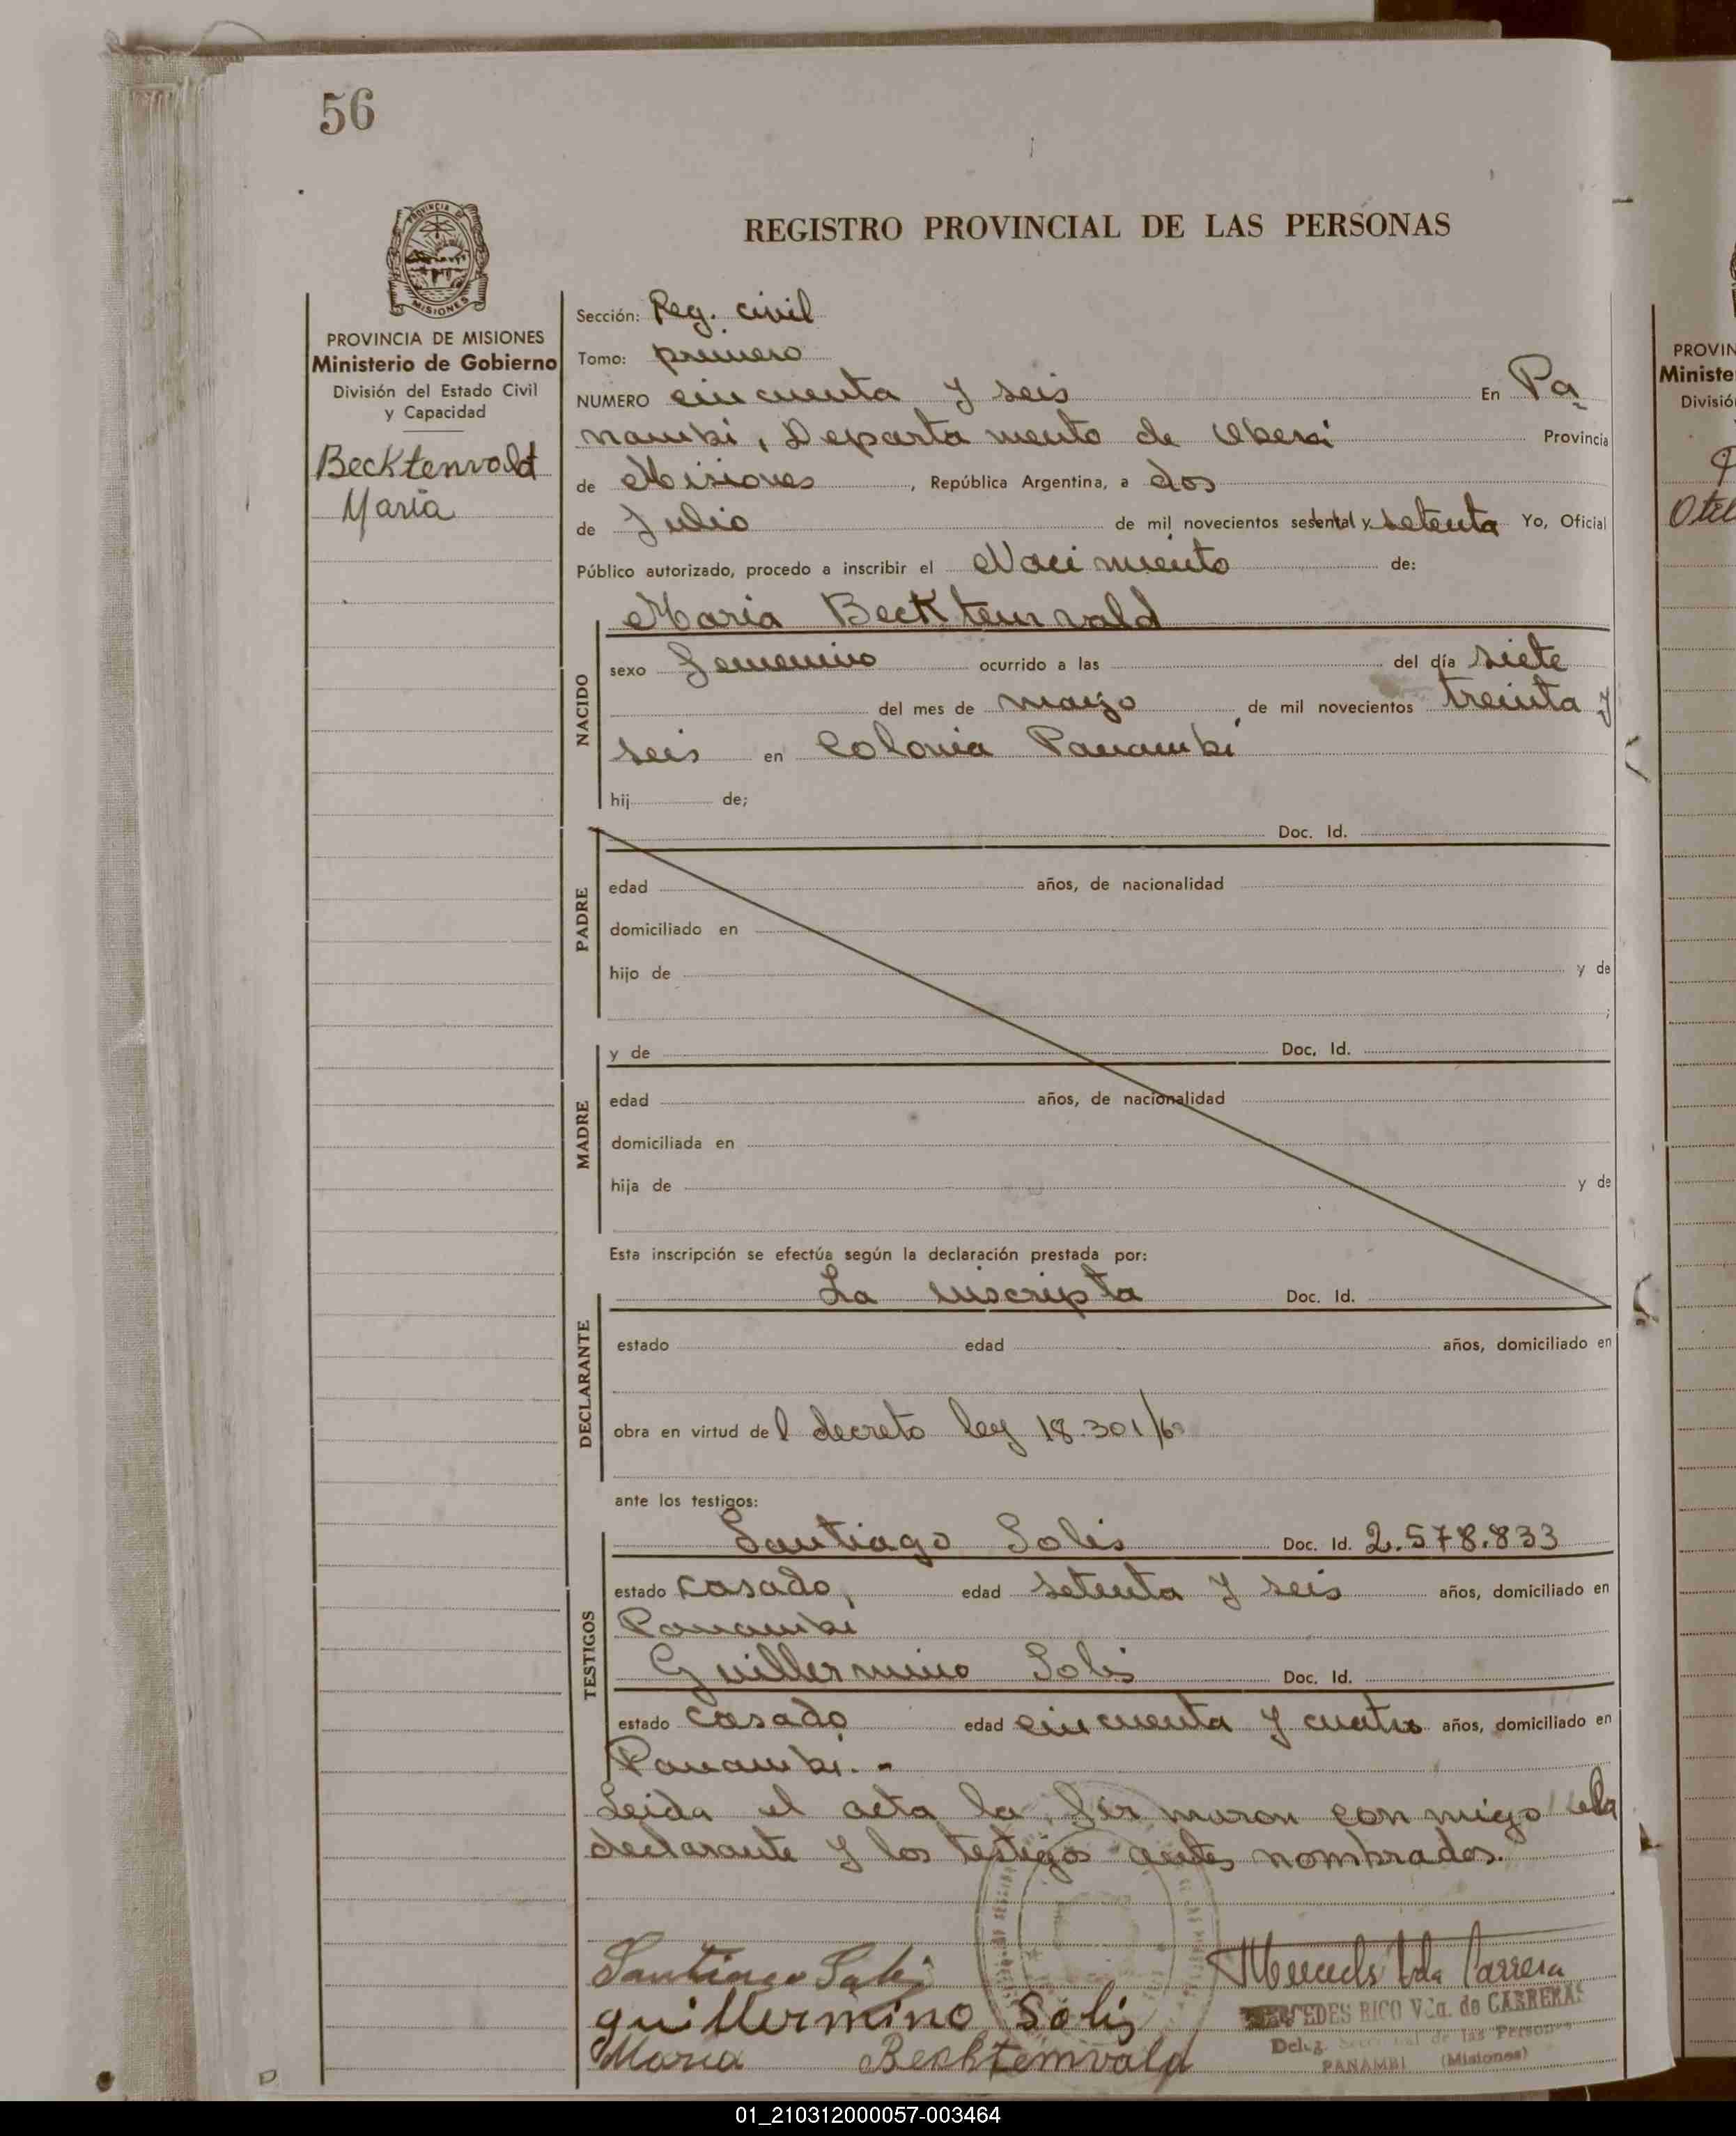 56
REGISTRO PROVINCIAL DE LAS PERSONAS
PROVINCIA DE
MISIONES
PROVINCIA DE MISIONES
Ministerio de Gobierno
División del Estado Civil
y Capacidad
Becktenvald
María
Sección: Reg. civil
Tomo: primero
NUMERO cincuenta y seis En Pa
nambi, Departamento de Oberá Provincia
de Misiones, República Argentina, a dos
de Julio de mil novecientos sesental y setenta Yo, Oficial
Público autorizado, procedo a inscribir el Nacimiento de:
Maria Becktenvald
NACIDO
sexo femenino ocurrido a las del día siete
del mes de marzo de mil novecientos treinta y
seis en Colonia Panambí
hij de;
PADRE
Doc. Id.
edad años, de nacionalidad
domiciliado en
hijo de y de
;
MADRE
y de Doc. Id.
edad años, de nacionalidad
domiciliada en
hija de y de
Esta inscripción se efectúa según la declaración prestada por:
DECLARANTE
La inscripta Doc. Id.
estado edad años, domiciliado en
obra en virtud del decreto ley 18.301/69
ante los testigos:
TESTIGOS
Santiago Solis Doc. Id. 2.578.833
estado casado, edad setenta y seis años, domiciliado en
Panambi
Guillermino Solis Doc. Id.
estado casado edad cincuenta y cuatro años, domiciliado en
Panambi.-
Leida el acta la firmaron conmigo la
declarante y los testigos antes nombrados.
Santiago Solis
guillermino Solis
Maria Becktemvald
Mercedes Vda Carrera
MERCEDES RICO Vda. de CARRERAS
Deleg. de las Personas
PANAMBI (Misiones)
PROVIN
Ministe
Divisió
Otel
01_210312000057-003464